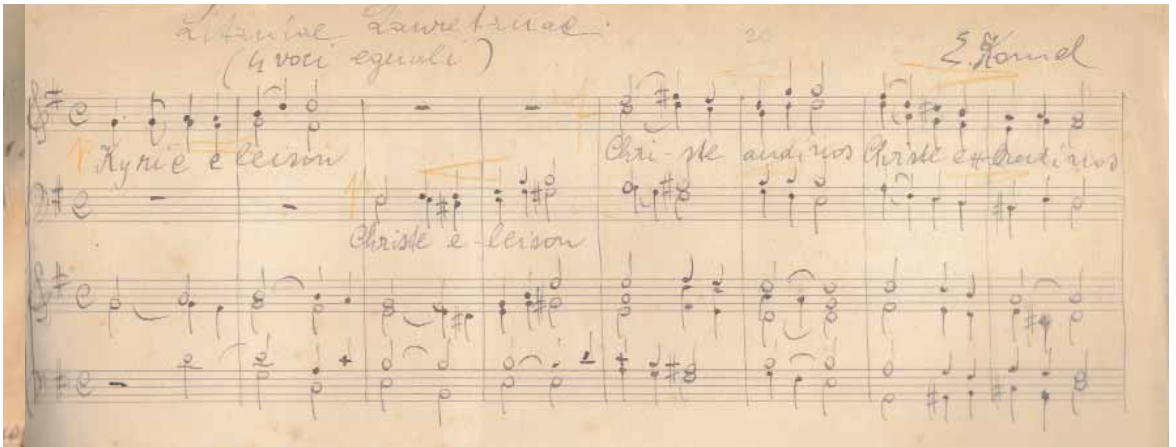 Litaniae Lauretanae.
(4 voci eguali)
20
Kyrie e leison
Chri-ste audi nos Christe exaudi nos
Christe e-leison